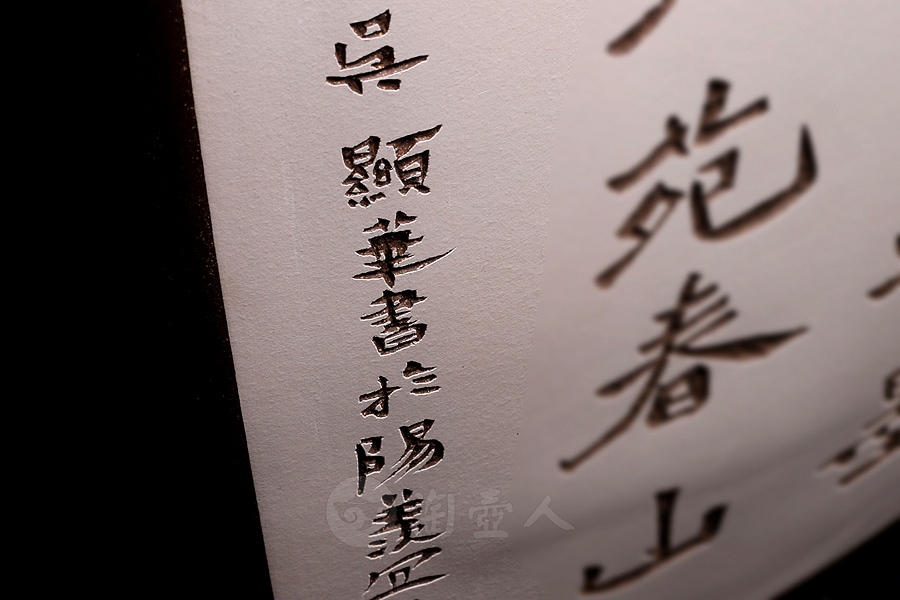 苑春山
吳顯華書於陽羨
陶壺人